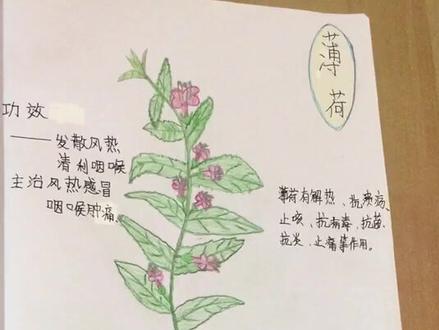 薄荷
功效
——发散风热
清利咽喉
主治风热感冒
咽喉肿痛。
薄荷有解热、抗痰病、
止咳、抗病毒、抗菌、
抗炎、止痛等作用。